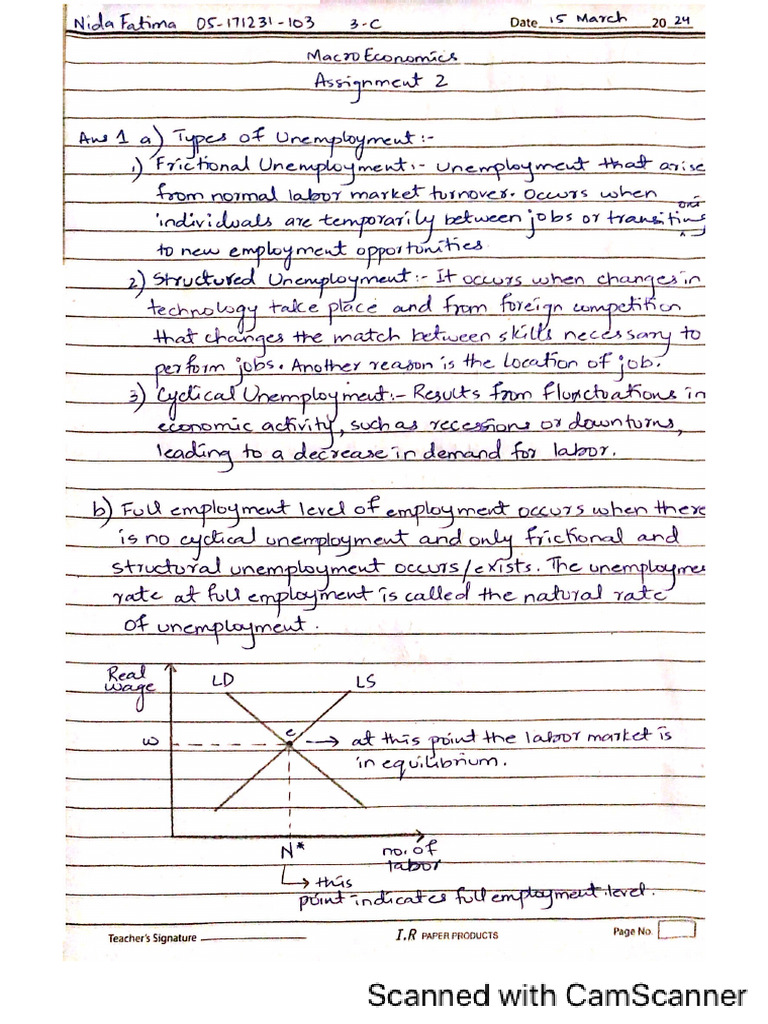 Nida Fatima 05-171231-103 3-C Date 15 March 20 24
MacroEconomics
Assignment 2
Ans 1 a) Types of Unemployment:-
1) Frictional Unemployment:- Unemployment that arise
from normal labor market turnover. Occurs when
individuals are temporarily between jobs or transitioning
to new employment opportunities
2) Structured Unemployment:- It occurs when changes in
technology take place and from foreign competition
that changes the match between skills necessary to
perform jobs. Another reason is the location of job.
3) Cyclical Unemployment:- Results from Flunctuations in
economic activity, such as recessions or downturns,
leading to a decrease in demand for labor.
b) Full employment level of employment occurs when there
is no cyclical unemployment and only frictional and
structural unemployment occurs/exists. The unemployme
rate at full employment is called the natural rate
of unemployment.
Real
wage
LD LS
w e → at this point the labor market is
in equilibrium.
N* no. of
labor
↳ this
point indicates full employment level.
Teacher's Signature I.R PAPER PRODUCTS Page No.
Scanned with CamScanner